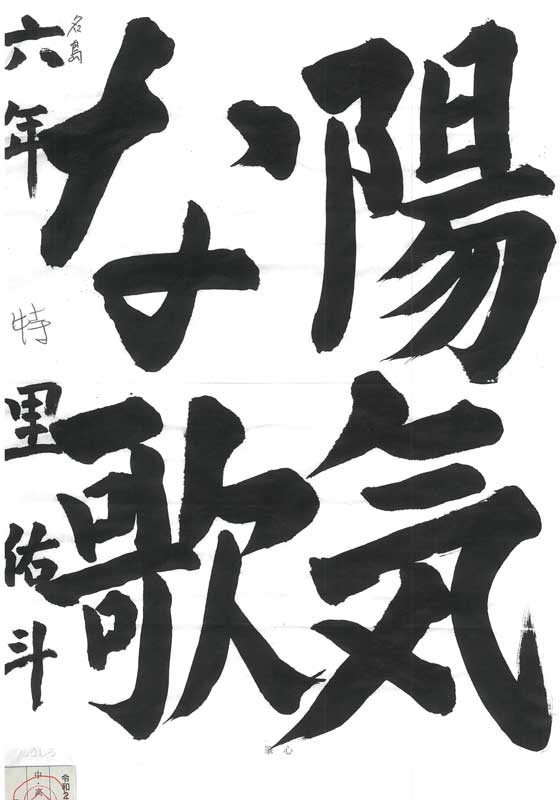 陽気
な歌
名島
六年 里佑斗
特
心筆
令和2
中・高